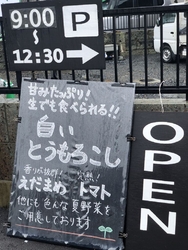 9:00
〜
12:30
P
甘みたっぷり!
生でも食べられる!!
白い
とうもろこし
香りが抜群!
えだまめ トマト
他にも色んな夏野菜を
ご用意しております
OPEN